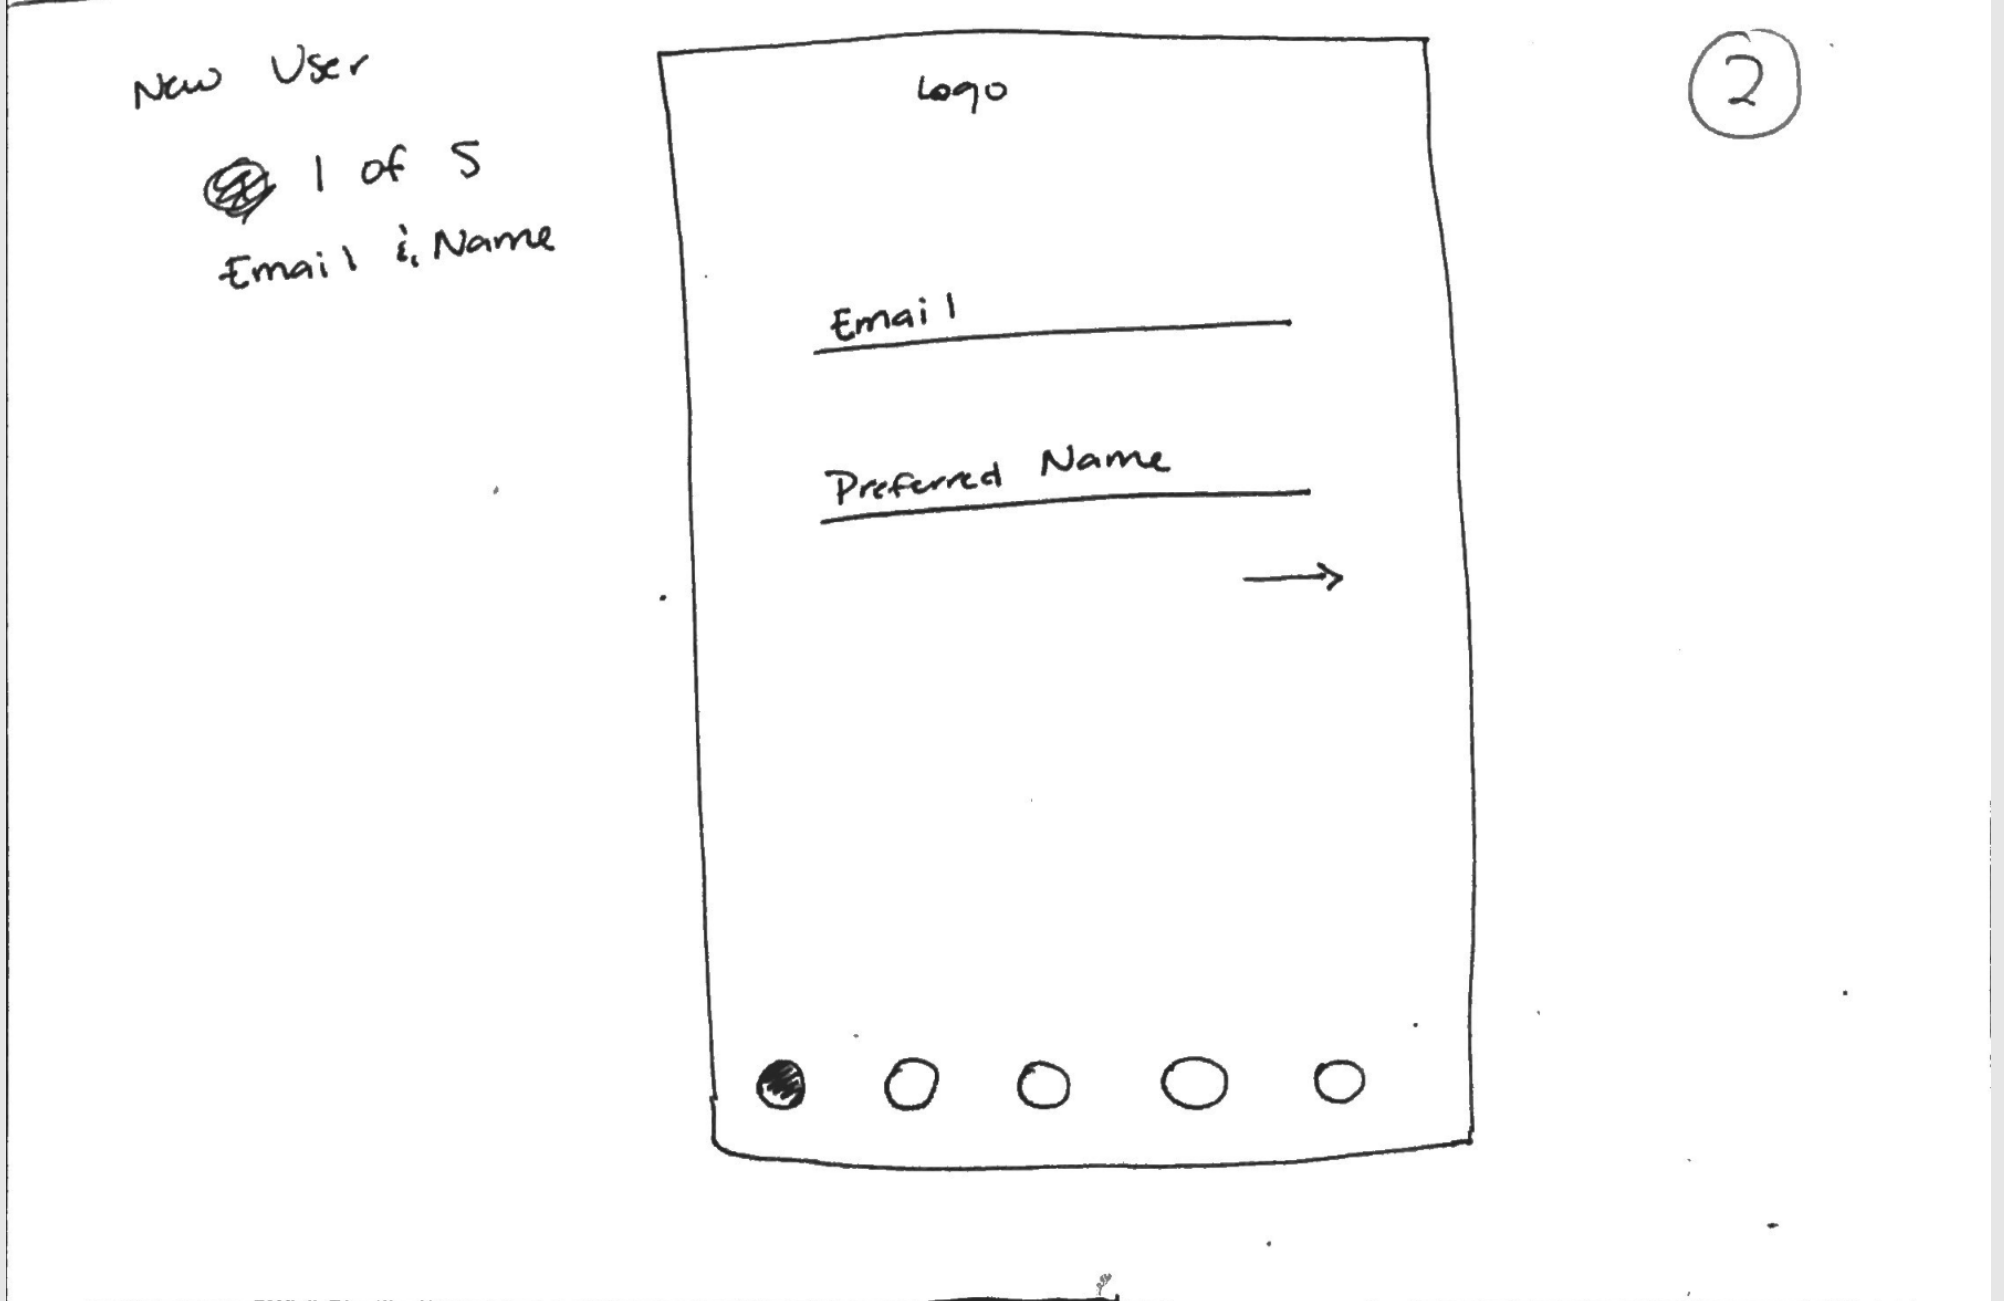 New User
1 of 5
Email & Name
Logo
Email
Preferred Name
2